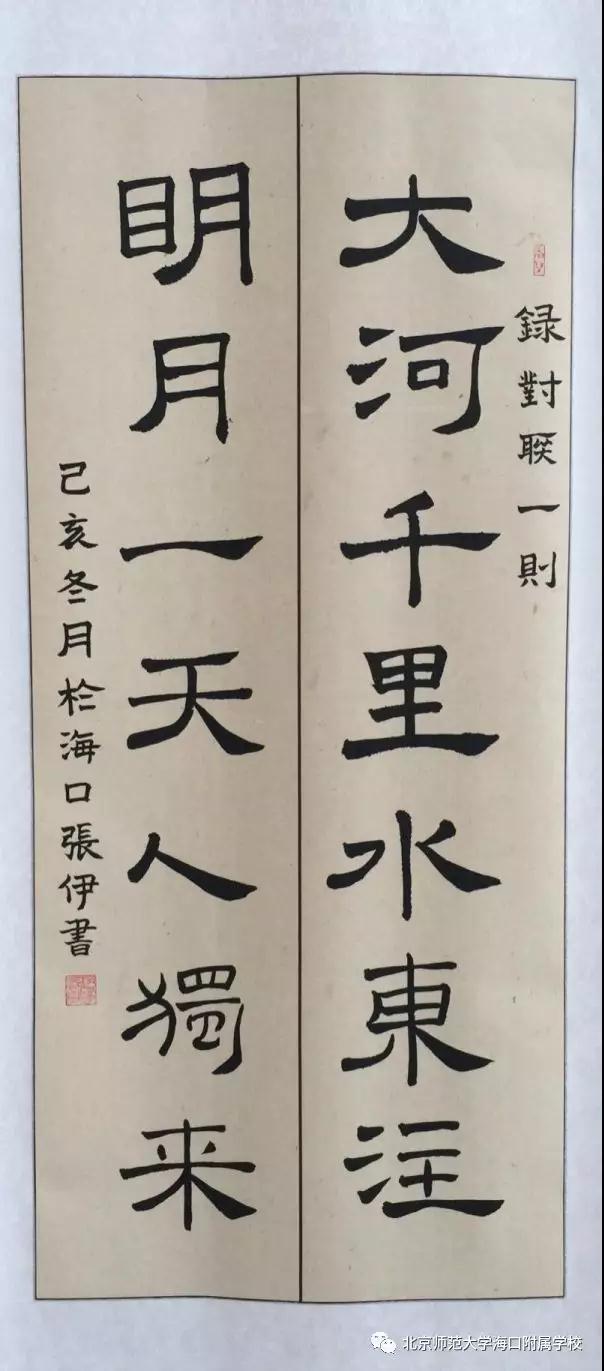 録對聯一則
大河千里水東注
明月一天人獨来
己亥冬月於海口張伊書
北京师范大学海口附属学校